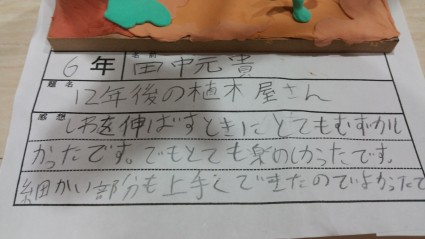 6年 名前 田中元貴
題名 12年後の植木屋さん
感想 しわを伸ばすときにとてもむずかし
かったです。でもとても楽のしかったです。
細かい部分も上手くできたのでよかったで